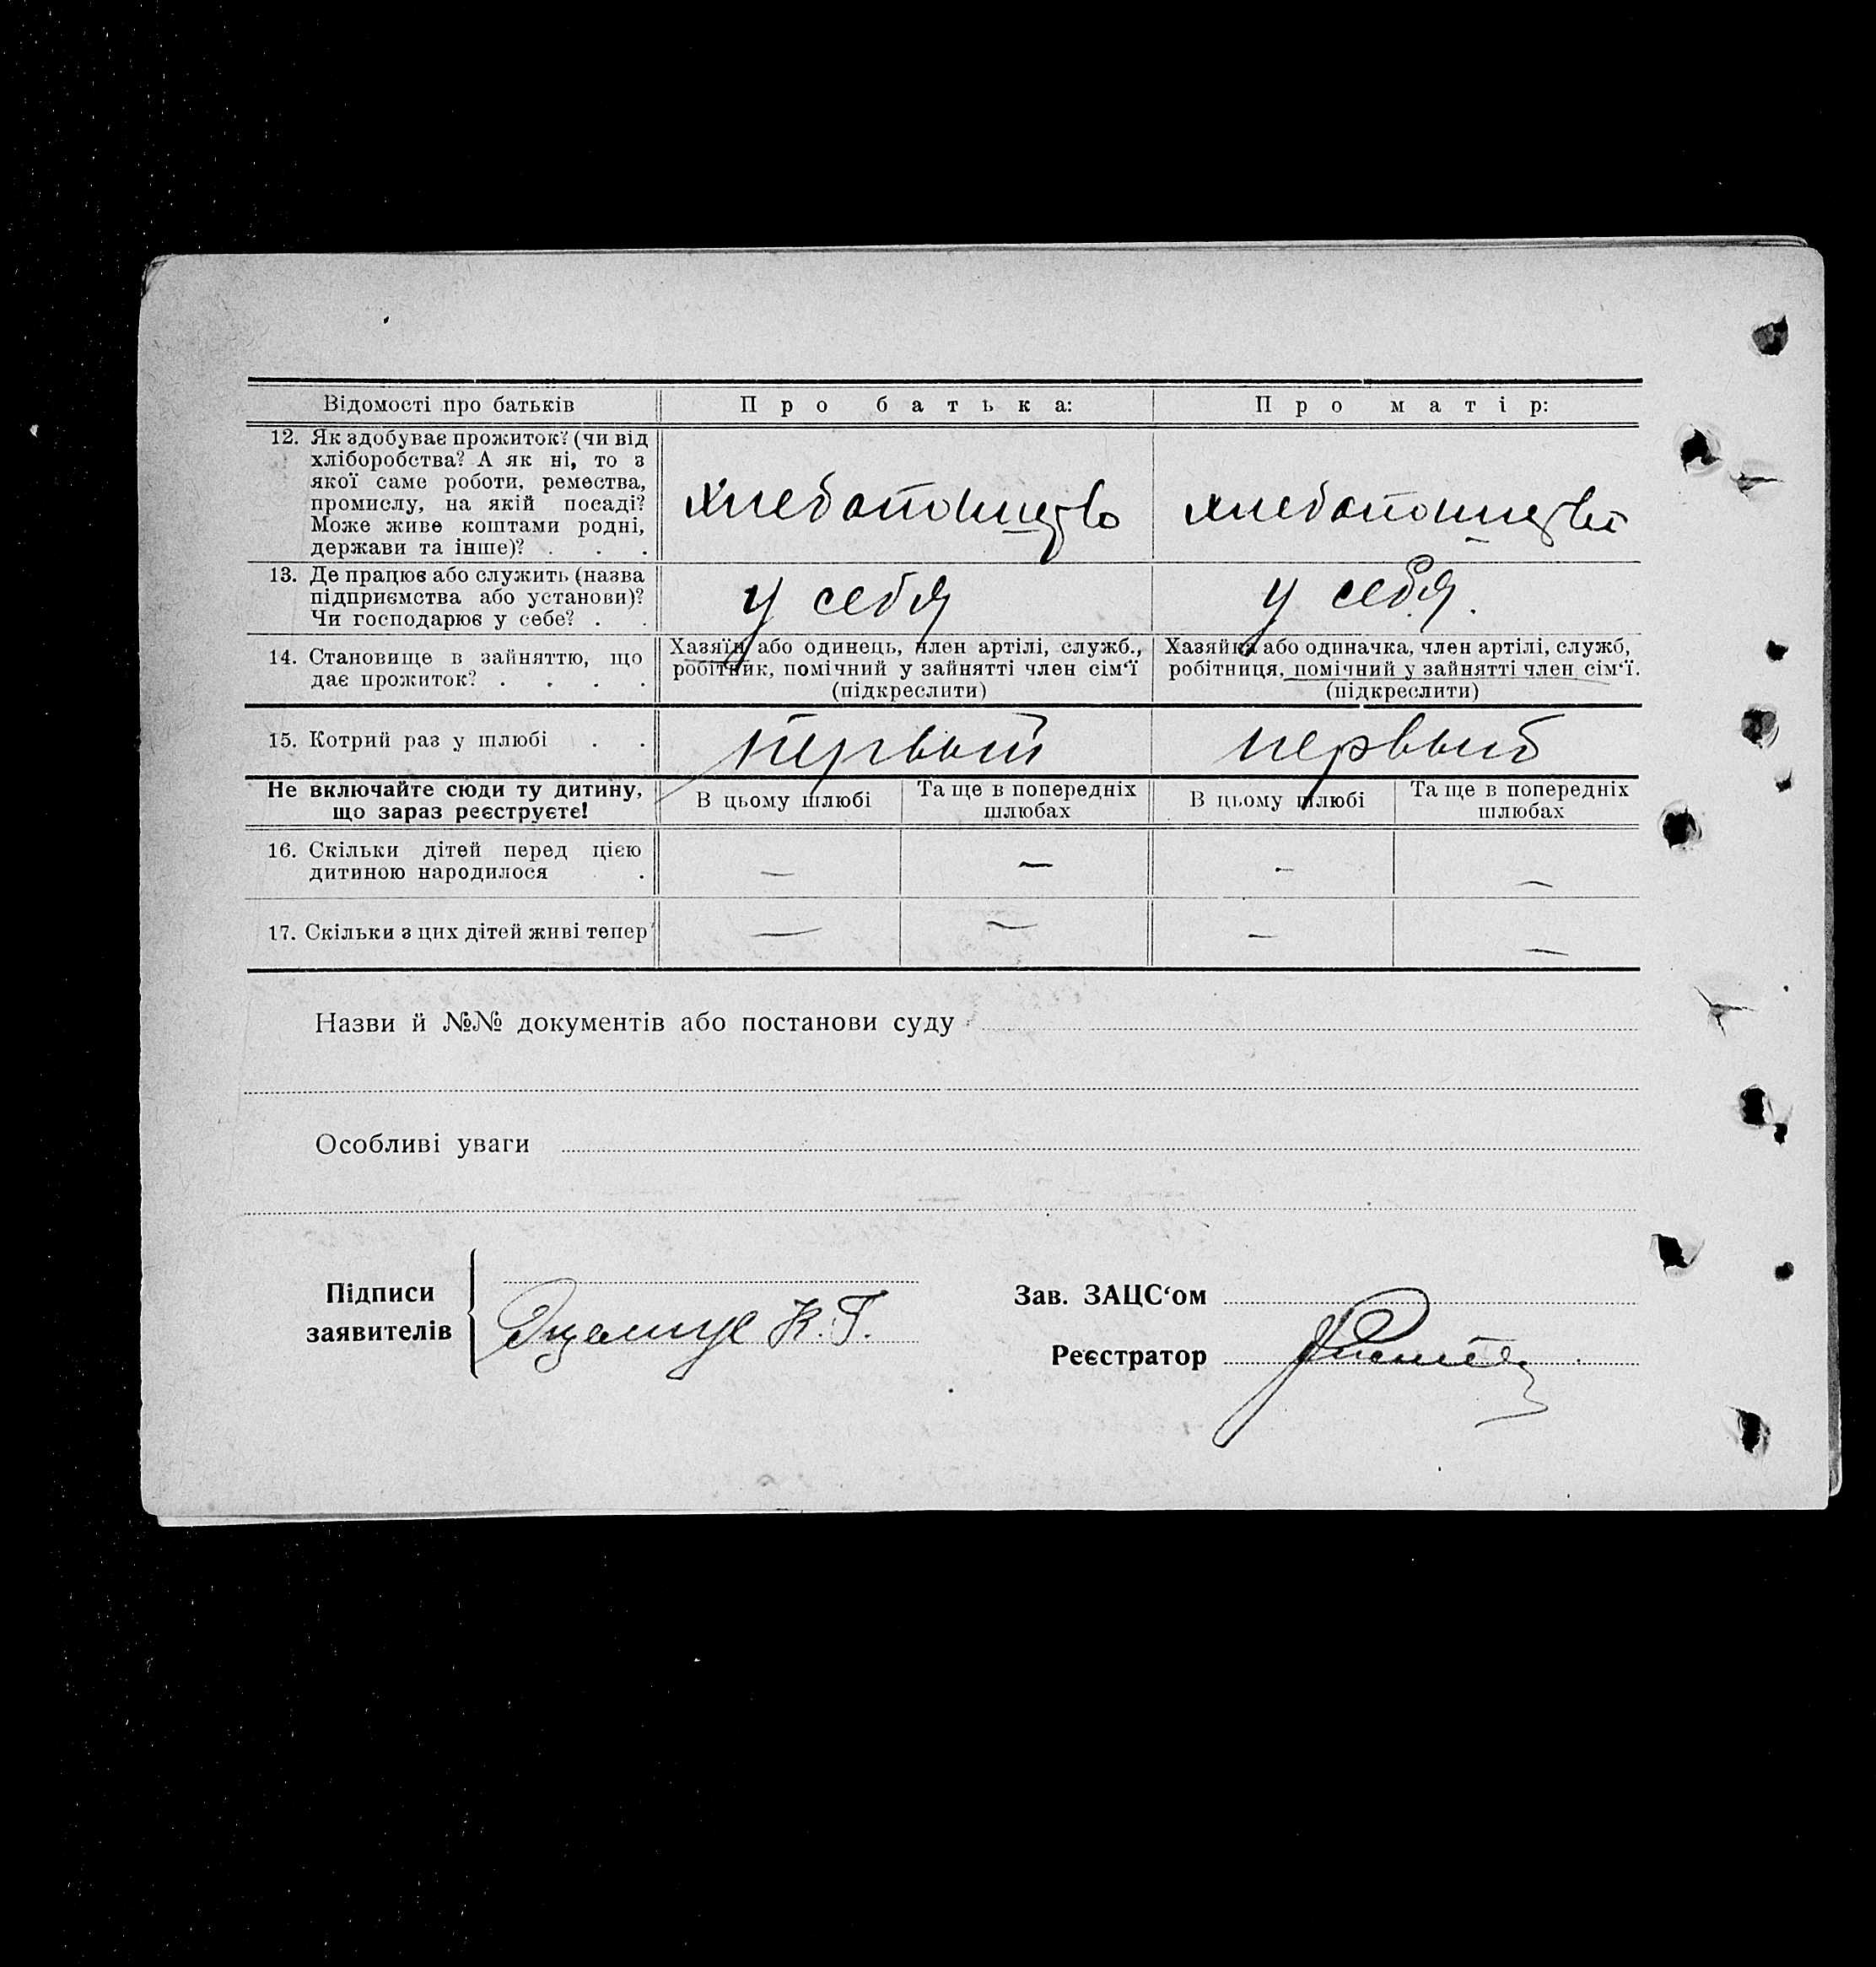 Відомості про батьків
Про батька:
Про матір:
12. Як здобуває прожиток? (чи від
хліборобства? А як ні, то з
якої саме роботи, ремества,
промислу, на якій посаді?
Може живе коштами родні,
держави та інше)? . . .
хлебопашество
хлебопашество
13. Де працює або служить (назва
підприємства або установи)?
Чи господарює у себе? . .
у себя
у себя.
14. Становище в зайняттю, що
дає прожиток? . . . .
Хазяїн або одинець, член артілі, служб.,
робітник, помічний у зайнятті член сім'ї
(підкреслити)
Хазяйка або одиначка, член артілі, служб,
робітниця, помічний у зайнятті член сім'ї.
(підкреслити)
15. Котрий раз у шлюбі . .
первый
первый
Не включайте сюди ту дитину,
що зараз реєструєте!
В цьому шлюбі
Та ще в попередніх
шлюбах
В цьому шлюбі
Та ще в попередніх
шлюбах
16. Скільки дітей перед цією
дитиною народилося .
— — — —
17. Скільки з цих дітей живі тепер
— — — —
Назви й №№ документів або постанови суду
Особливі уваги
Підписи
заявителів
К. Г.
Зав. ЗАЦС'ом
Реєстратор